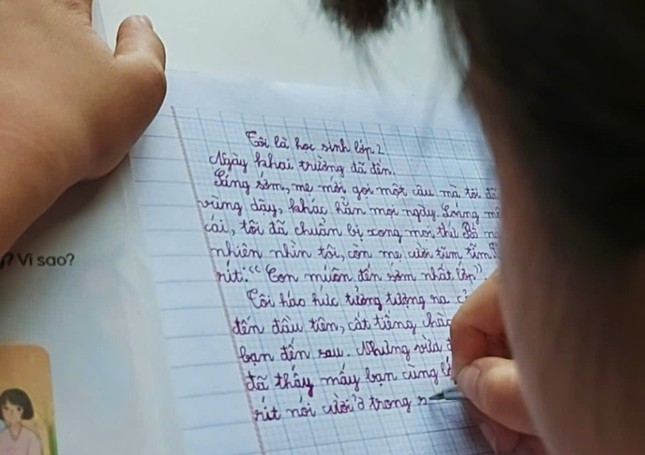 Tôi là học sinh lớp 2
Ngày khai trường đã đến.
Sáng sớm, mẹ mới gọi một câu mà tôi đã
vùng dậy, khác hẳn mọi ngày. Loáng một
cái, tôi đã chuẩn bị xong mọi thứ. Bố
nhiên nhìn tôi, còn mẹ cười tủm tỉm.
rít: "Con muốn đến sớm nhất lớp"
Tôi háo hức tưởng tượng ra
đến đầu tiên, cất tiếng chào
bạn đến sau. Nhưng vừa
đã thấy mấy bạn cùng
rít nói cười ở trong
Vì sao?